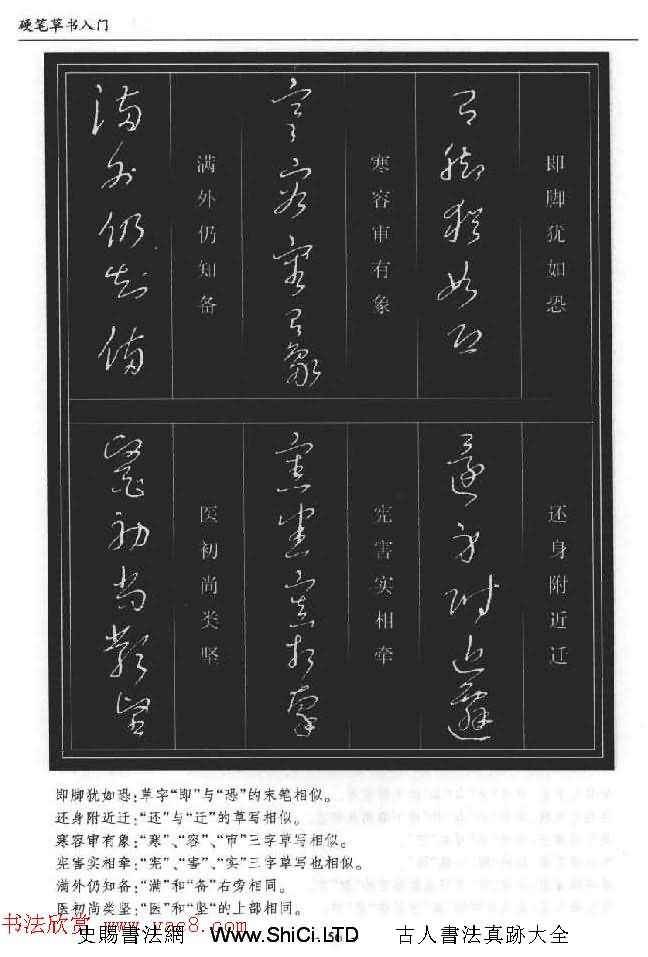 硬笔草书入门
即脚犹如恐
寒容审有象
满外仍知备
还身附近迁
宪害实相牵
医初尚类坚
即脚犹如恐：草字“即”与“恐”的末笔相似。
还身附近迁：“还”与“迁”的草写相似。
寒容审有象：“寒”、“容”、“审”三字草写相似。
宪害实相牵：“宪”、“害”、“实”三字草写也相似。
满外仍知备：“满”和“备”右旁相同。
医初尚类坚：“医”和“坚”的上部相同。
书法欣赏 www.yac8.com
史賜書法網 Www.ShiCi.LTD 古人書法真跡大全